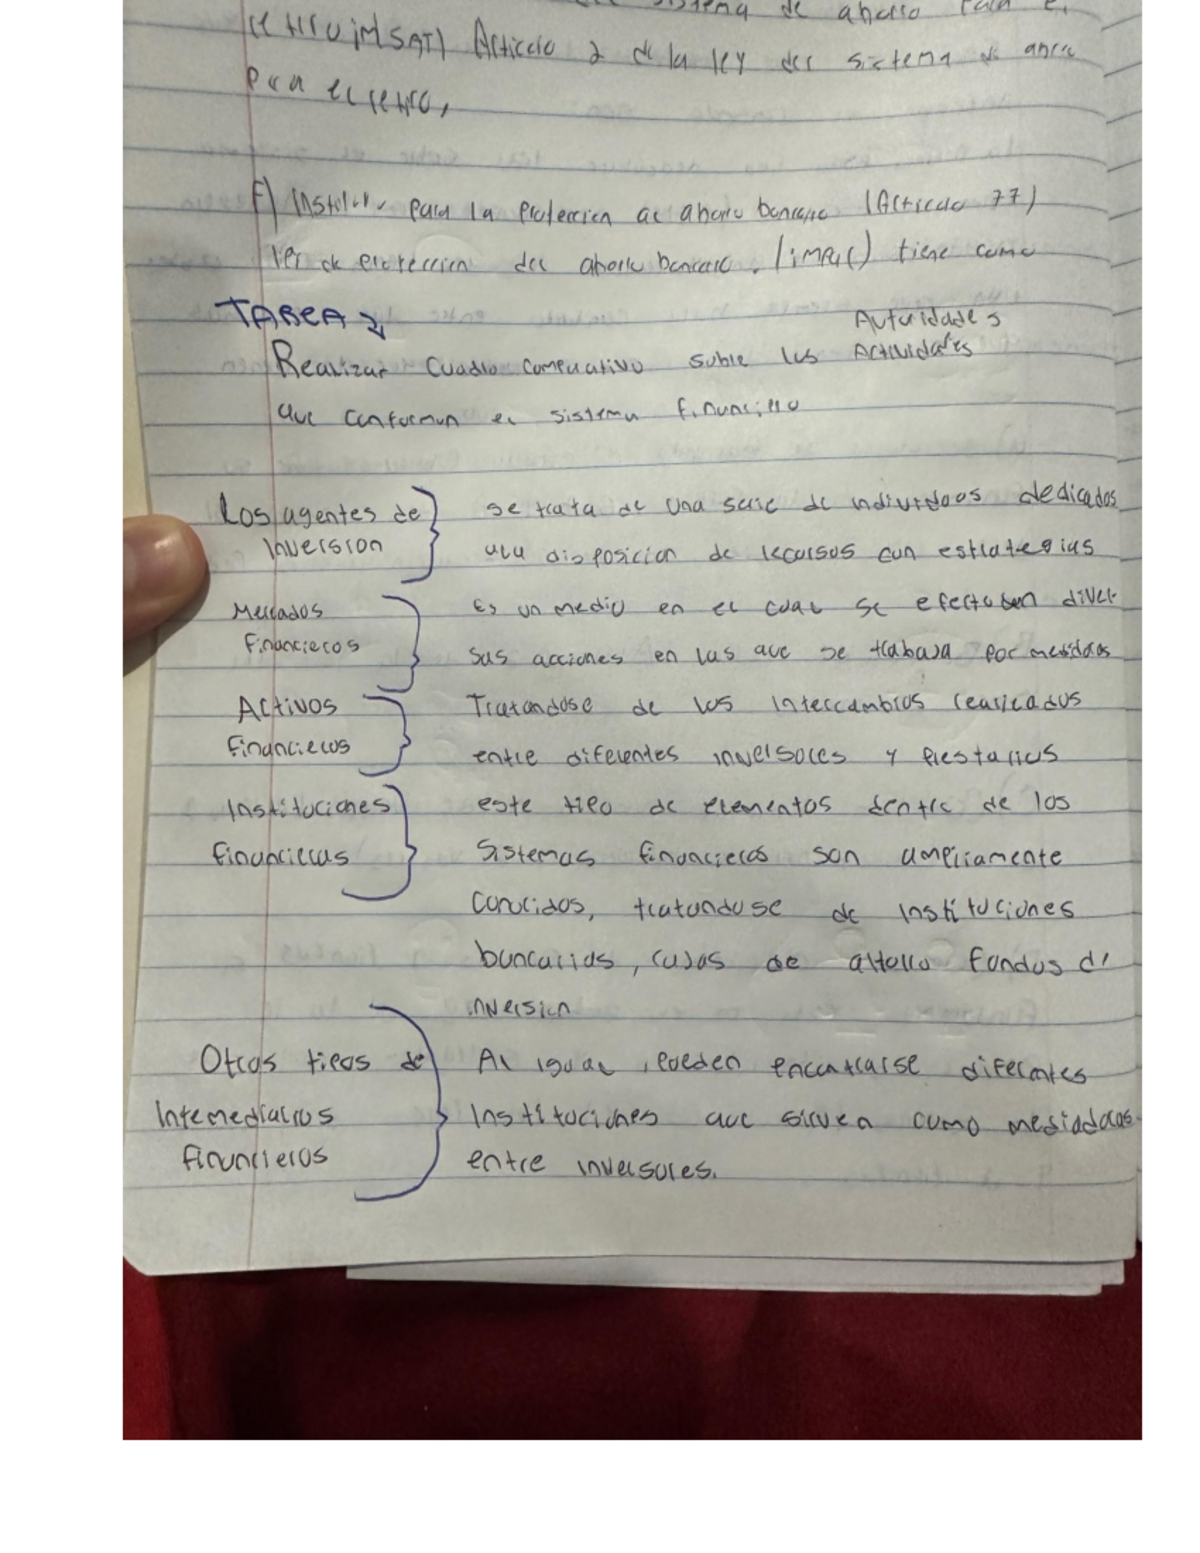 sistema de ahorro para el
Articulo 2 de la ley del sistema de
para el retiro,
F) Instituto para la proteccion al ahorro bancario (Articulo 77)
Ley de proteccion del ahorro bancario. tiene como
TAREA 2
Autoridades
Realizar Cuadro comparativo sobre las Actividades
que conforman el sistema financiero
Los agentes de
Inversion
se trata de una serie de individuos dedicados
a la disposicion de recursos con estrategias
Mercados
Financieros
Es un medio en el cual se efectuben diver
sas acciones en las que se trabaja por medidas
Activos
financieros
Tratandose de los intercambios realizados
entre diferentes inversores y prestarios
Instituciones
financieras
este tipo de elementos dentro de los
Sistemas financieros son ampliamente
conocidos, tratandose de instituciones
bancarias, casas de ahorro fondos de
inversion
Otros tipos de
Intemediarios
financieros
Al igual, pueden encontrarse diferentes
Instituciones que sirven como mediadoras
entre inversores.